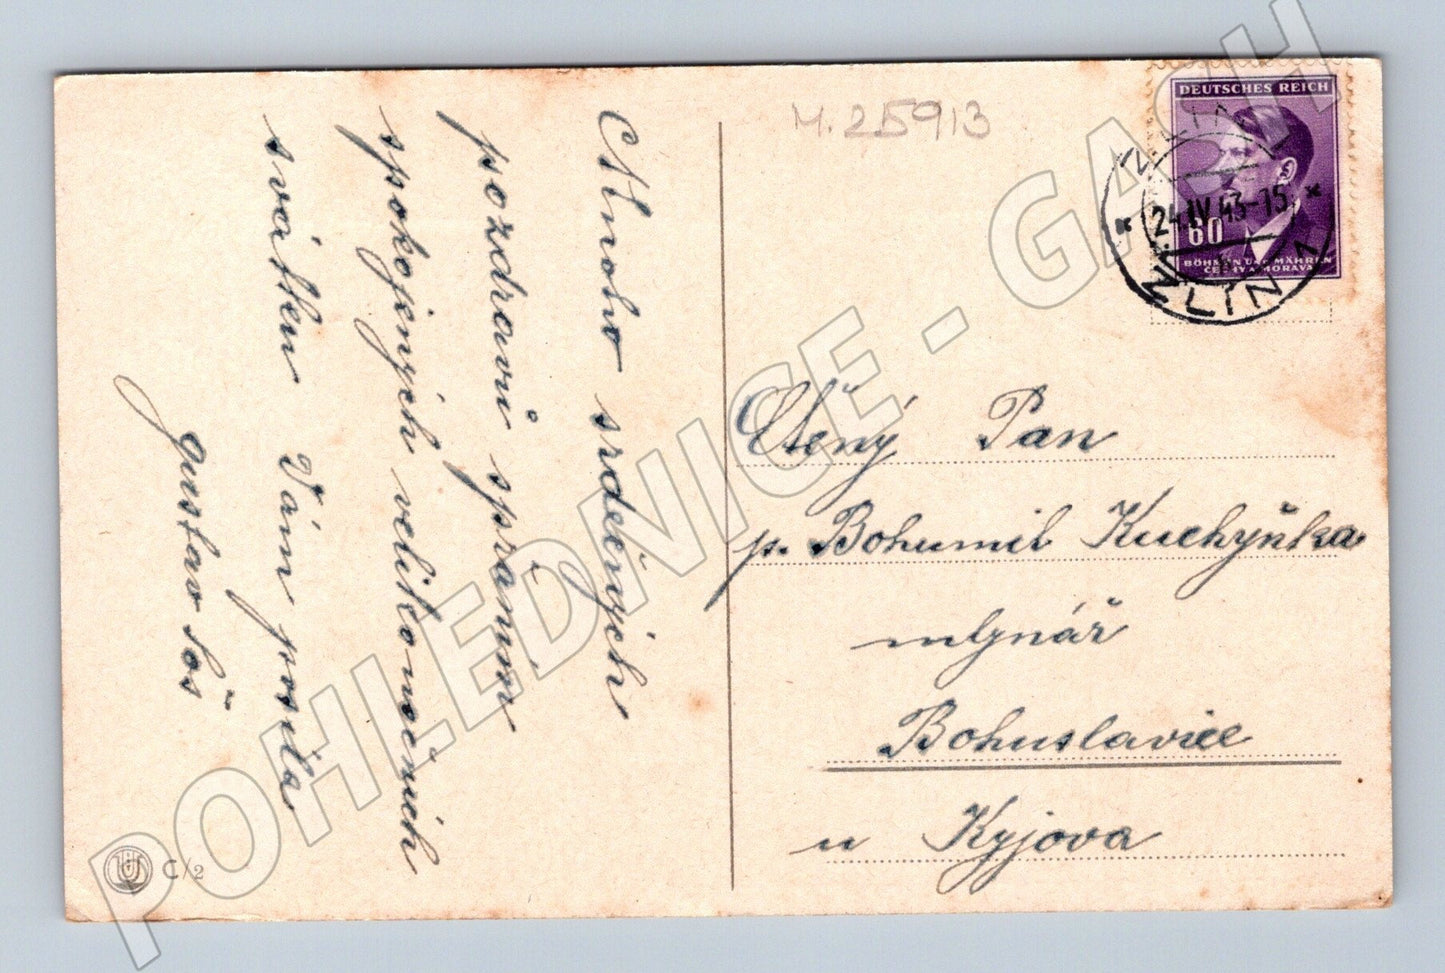 Mnoho srdečných
pozdravů s přáním
spokojených velikonočních
svátků Vám posílá
Gustav Šoš
M. 25913
DEUTSCHES REICH
60
BÖHMEN UND MÄHREN
ČECHY A MORAVA
ZLÍN 1
* 24.IV.43-15 *
ZLIN 1
Ctěný Pan
p. Bohumil Kuchyňka
mlynář
Bohuslavice
u Kyjova
C/2
POHLEDNICE - GASH